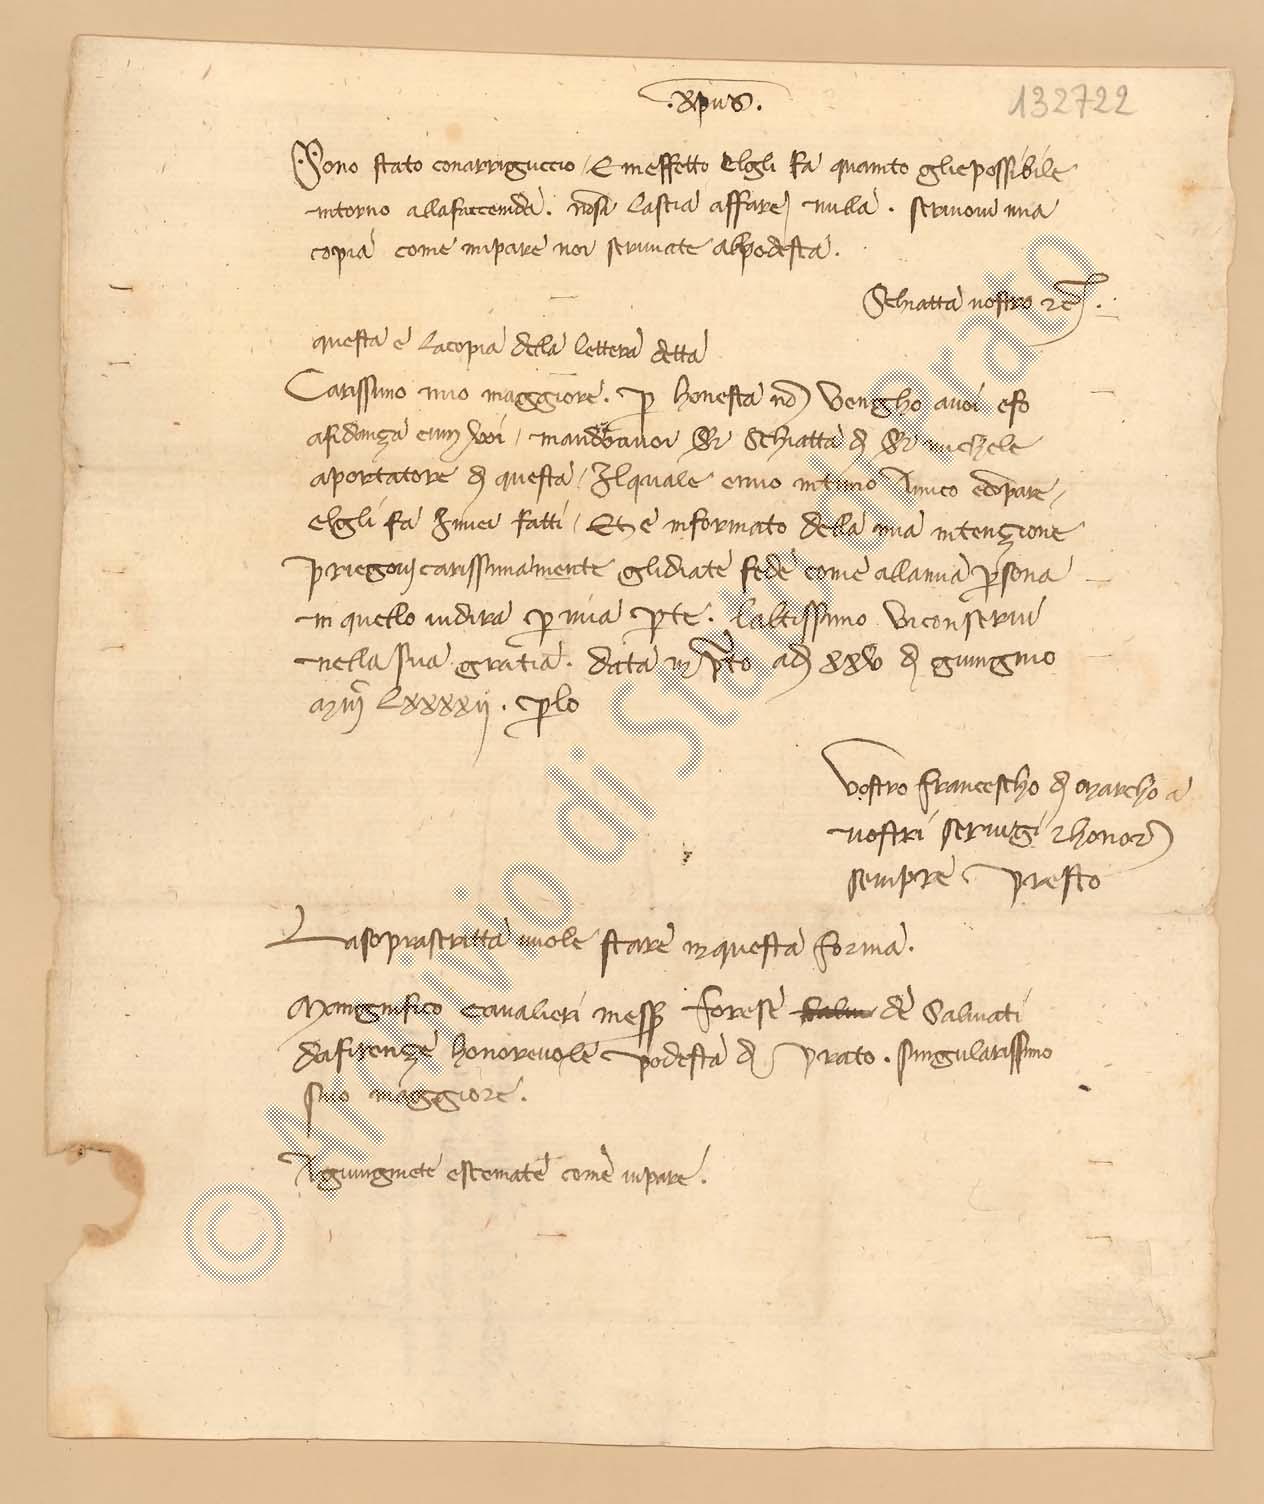 .xpus.
132722
Sono stato conarriguccio / E in effetto Elgli fa quanto gliepossibile
intorno allafaccenda. nosi lascia affare nulla. scrivovi una
copia come mipare voi scriviate alpodesta.
Schiatta vostro
questa e lacopia della lettera detta
Carissimo mio maggiore. p honesta no vengho avoi e so
afidanza mandovi Schiatta di michele
aportatore di questa / Ilquale emio intimo Amico
elgli fa Imiei fatti / Et e informato della mia intenzione
priegovi carissimamente glidiate fede come allamia psona
in quello vidira p mia pte. laltissimo viconservi
nella sua gratia. data in pto adi xxv di giungnio
Lxxxxij. plo
Vostro francescho di marcho a
vostri servigi honor
sempre presto
Lasoprascritta vuole stare inquesta forma.
Mangnifico cavalieri messer forese de Salviati
dafirenze honorevole podesta di prato. singularissimo
suo maggiore.
Agiungniete escemate come vipare.
© Archivio di Stato di Prato